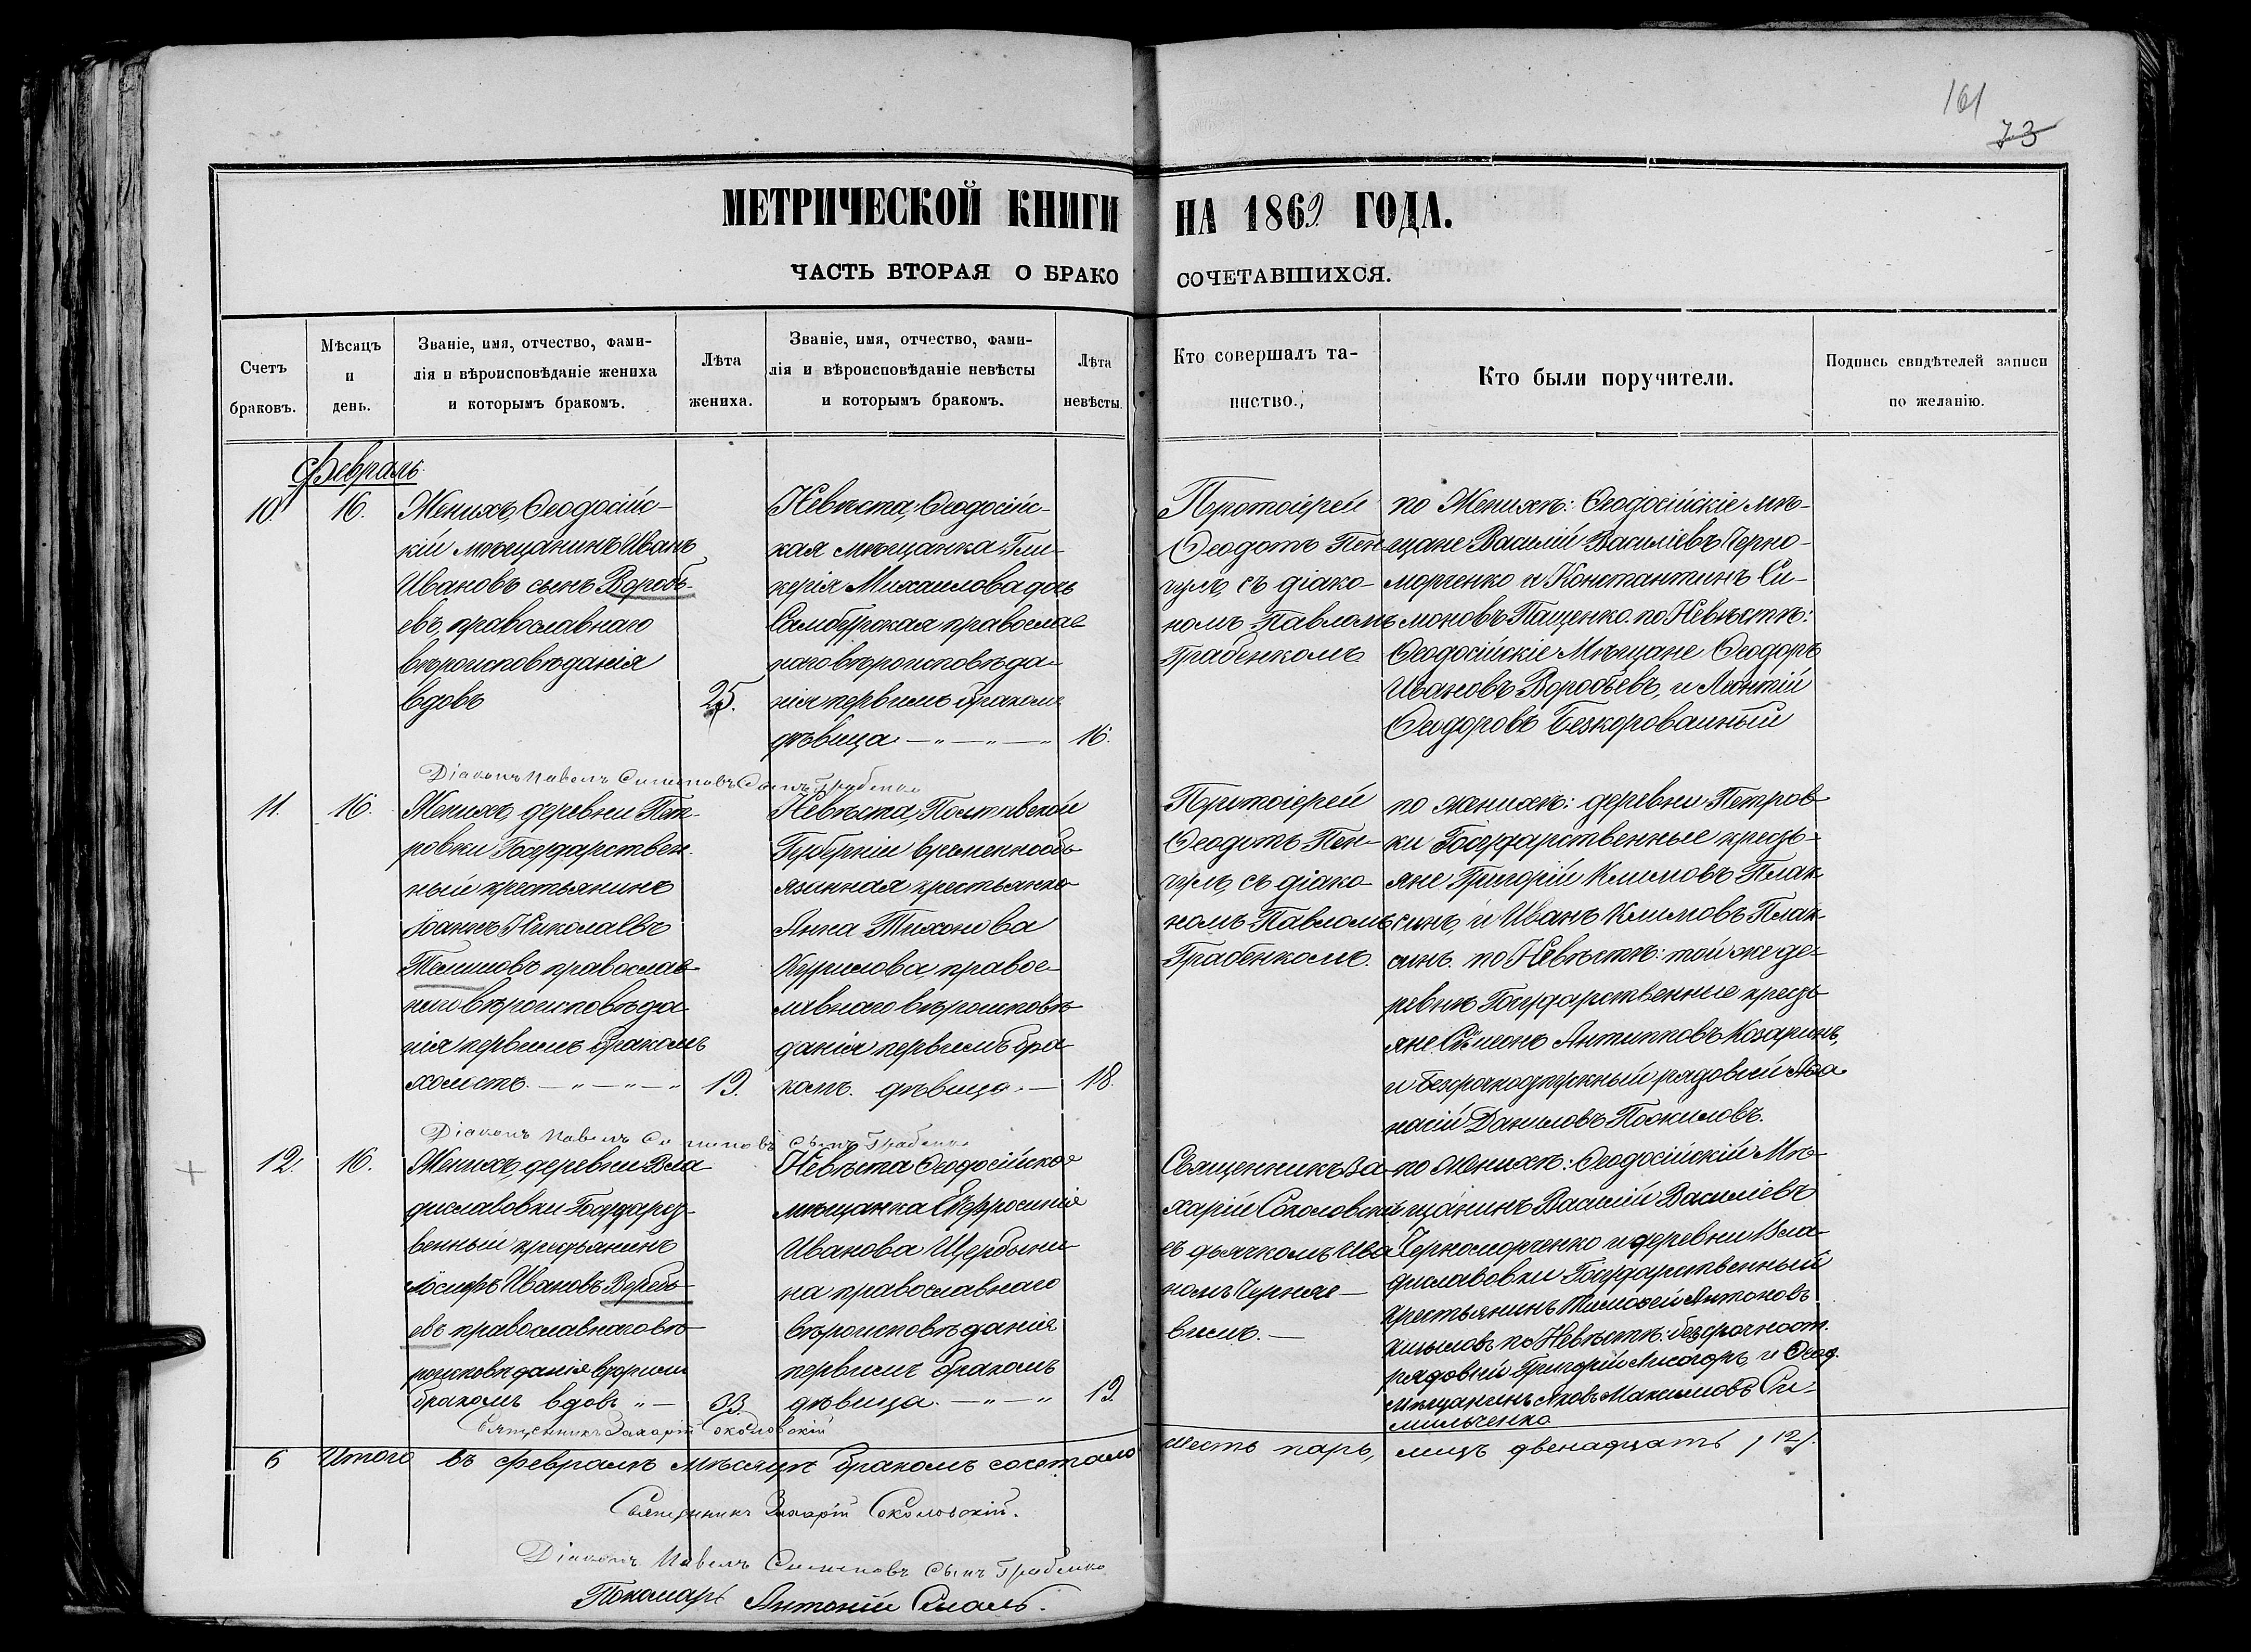 161
73
МЕТРИЧЕСКОЙ КНИГИ НА 1869 ГОДА.
ЧАСТЬ ВТОРАЯ О БРАКОСОЧЕТАВШИХСЯ.
Счетъ браковъ.
Мѣсяцъ и день.
Званіе, имя, отчество, фами-
лія и вѣроисповѣданіе жениха
и которымъ бракомъ.
Лѣта жениха.
Званіе, имя, отчество, фами-
лія и вѣроисповѣданіе невѣсты
и которымъ бракомъ.
Лѣта невѣсты.
Кто совершалъ та-
инство.
Кто были поручители.
Подпись свидѣтелей записи
по желанію.
Февраль
10.
16.
Женихъ, Ѳеодосійс-
кій мѣщанинъ Иванъ
Ивановъ сынъ Воробь-
евъ, православнаго
вѣроисповѣданія
вдовъ
25.
Невѣста, Ѳеодосійс-
кая мѣщанка Гли-
керія Михаилова дочь
Самбурская православ
наго вѣроисповѣда-
нія первымъ бракомъ
дѣвица
16.
Протоіерей
Ѳеодотъ Пен-
чулъ, съ діако-
номъ Павломъ
Грабенкомъ
по Женихѣ: Ѳеодосійскіе мѣ-
щане Василій Василіевъ Черно-
морченко и Константинъ Си-
моновъ Пащенко. по Невѣстѣ:
Ѳеодосійскіе Мѣщане Ѳеодоръ
Ивановъ Воробьевъ, и Леонтій
Ѳеодоровъ Безкоровайный
Діаконъ Павелъ Симоновъ Сынъ Грабенко
11.
16.
Женихъ, деревни Пет-
ровки Государствен-
ный крестьянинъ
Іоаннъ Николаевъ
православ-
наго вѣроисповѣда
нія первымъ бракомъ
холостъ.
19.
Невѣста, Полтавской
Губерніи временнообъ-
язанная крестьянка
Анна Тихонова
Курилова, правос-
лавнаго вѣроисповѣ-
данія первымъ бра-
комъ. дѣвица.
18.
Протоіерей
Ѳеодотъ Пен-
чулъ, съ діако-
номъ Павломъ
Грабенкомъ.
по женихѣ: деревни Петров-
ки Государственные кресть-
яне Григорій Климовъ Плак-
синъ, и Иванъ Климовъ Плак-
синъ. по Невѣстѣ: той же де-
ревни Государственные кресть-
яне Сѵмеонъ Антиповъ Козаринъ,
и безсрочноотпускный рядовый Аѳа-
насій Даниловъ
Діаконъ Павелъ Симоновъ сынъ Грабенко
12.
16.
Женихъ, деревни Вла-
диславовки Государст-
венный крестьянинъ
Іосифъ Ивановъ Воробь-
евъ православнаго вѣ-
роисповѣданія вторымъ
бракомъ вдовъ
33.
Невѣста Ѳеодосійская
мѣщанка Евфросинія
Иванова Щербини-
на православнаго
вѣроисповѣданія
первымъ бракомъ
дѣвица.
19.
Священникъ За-
харій Соколовскій
съ дьячкомъ Ива-
номъ Черняв-
скимъ.
по Женихѣ: Ѳеодосійскій Мѣ-
щанинъ Василій Василіевъ
Черноморченко и деревни Вла-
диславовки Государственный
крестьянинъ Тимоѳей Антоновъ
по Невѣстѣ: безсрочноот.
рядовый Григорій и Ѳеод.
мѣщанинъ Яковъ Максимовъ Си-
мильченко
Священникъ Захарій Соколовскій
6 Итого въ февралѣ мѣсяцѣ бракомъ сочетало шесть паръ, лицъ двенадцать /12/.
Священникъ Захарій Соколовскій.
Діаконъ Павелъ Симоновъ Сынъ Грабенко
Пономарь Антоній